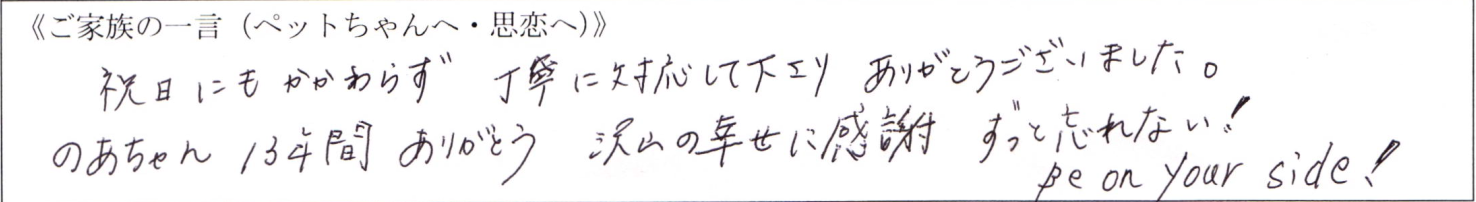 《ご家族の一言（ペットちゃんへ・思恋へ）》
祝日にもかかわらず 丁寧に対応して下さり ありがとうございました。
のあちゃん 13年間 ありがとう 沢山の幸せに感謝 ずっと忘れない！
Be on your side！